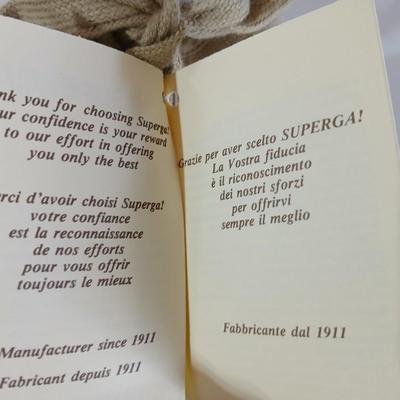 you for choosing Superga!
confidence is your reward
to our effort in offering
you only the best
d'avoir choisi Superga!
votre confiance
est la reconnaissance
de nos efforts
pour vous offrir
toujours le mieux
Manufacturer since 1911
Fabricant depuis 1911
Grazie per aver scelto SUPERGA!
La Vostra fiducia
è il riconoscimento
dei nostri sforzi
per offrirvi
sempre il meglio
Fabbricante dal 1911